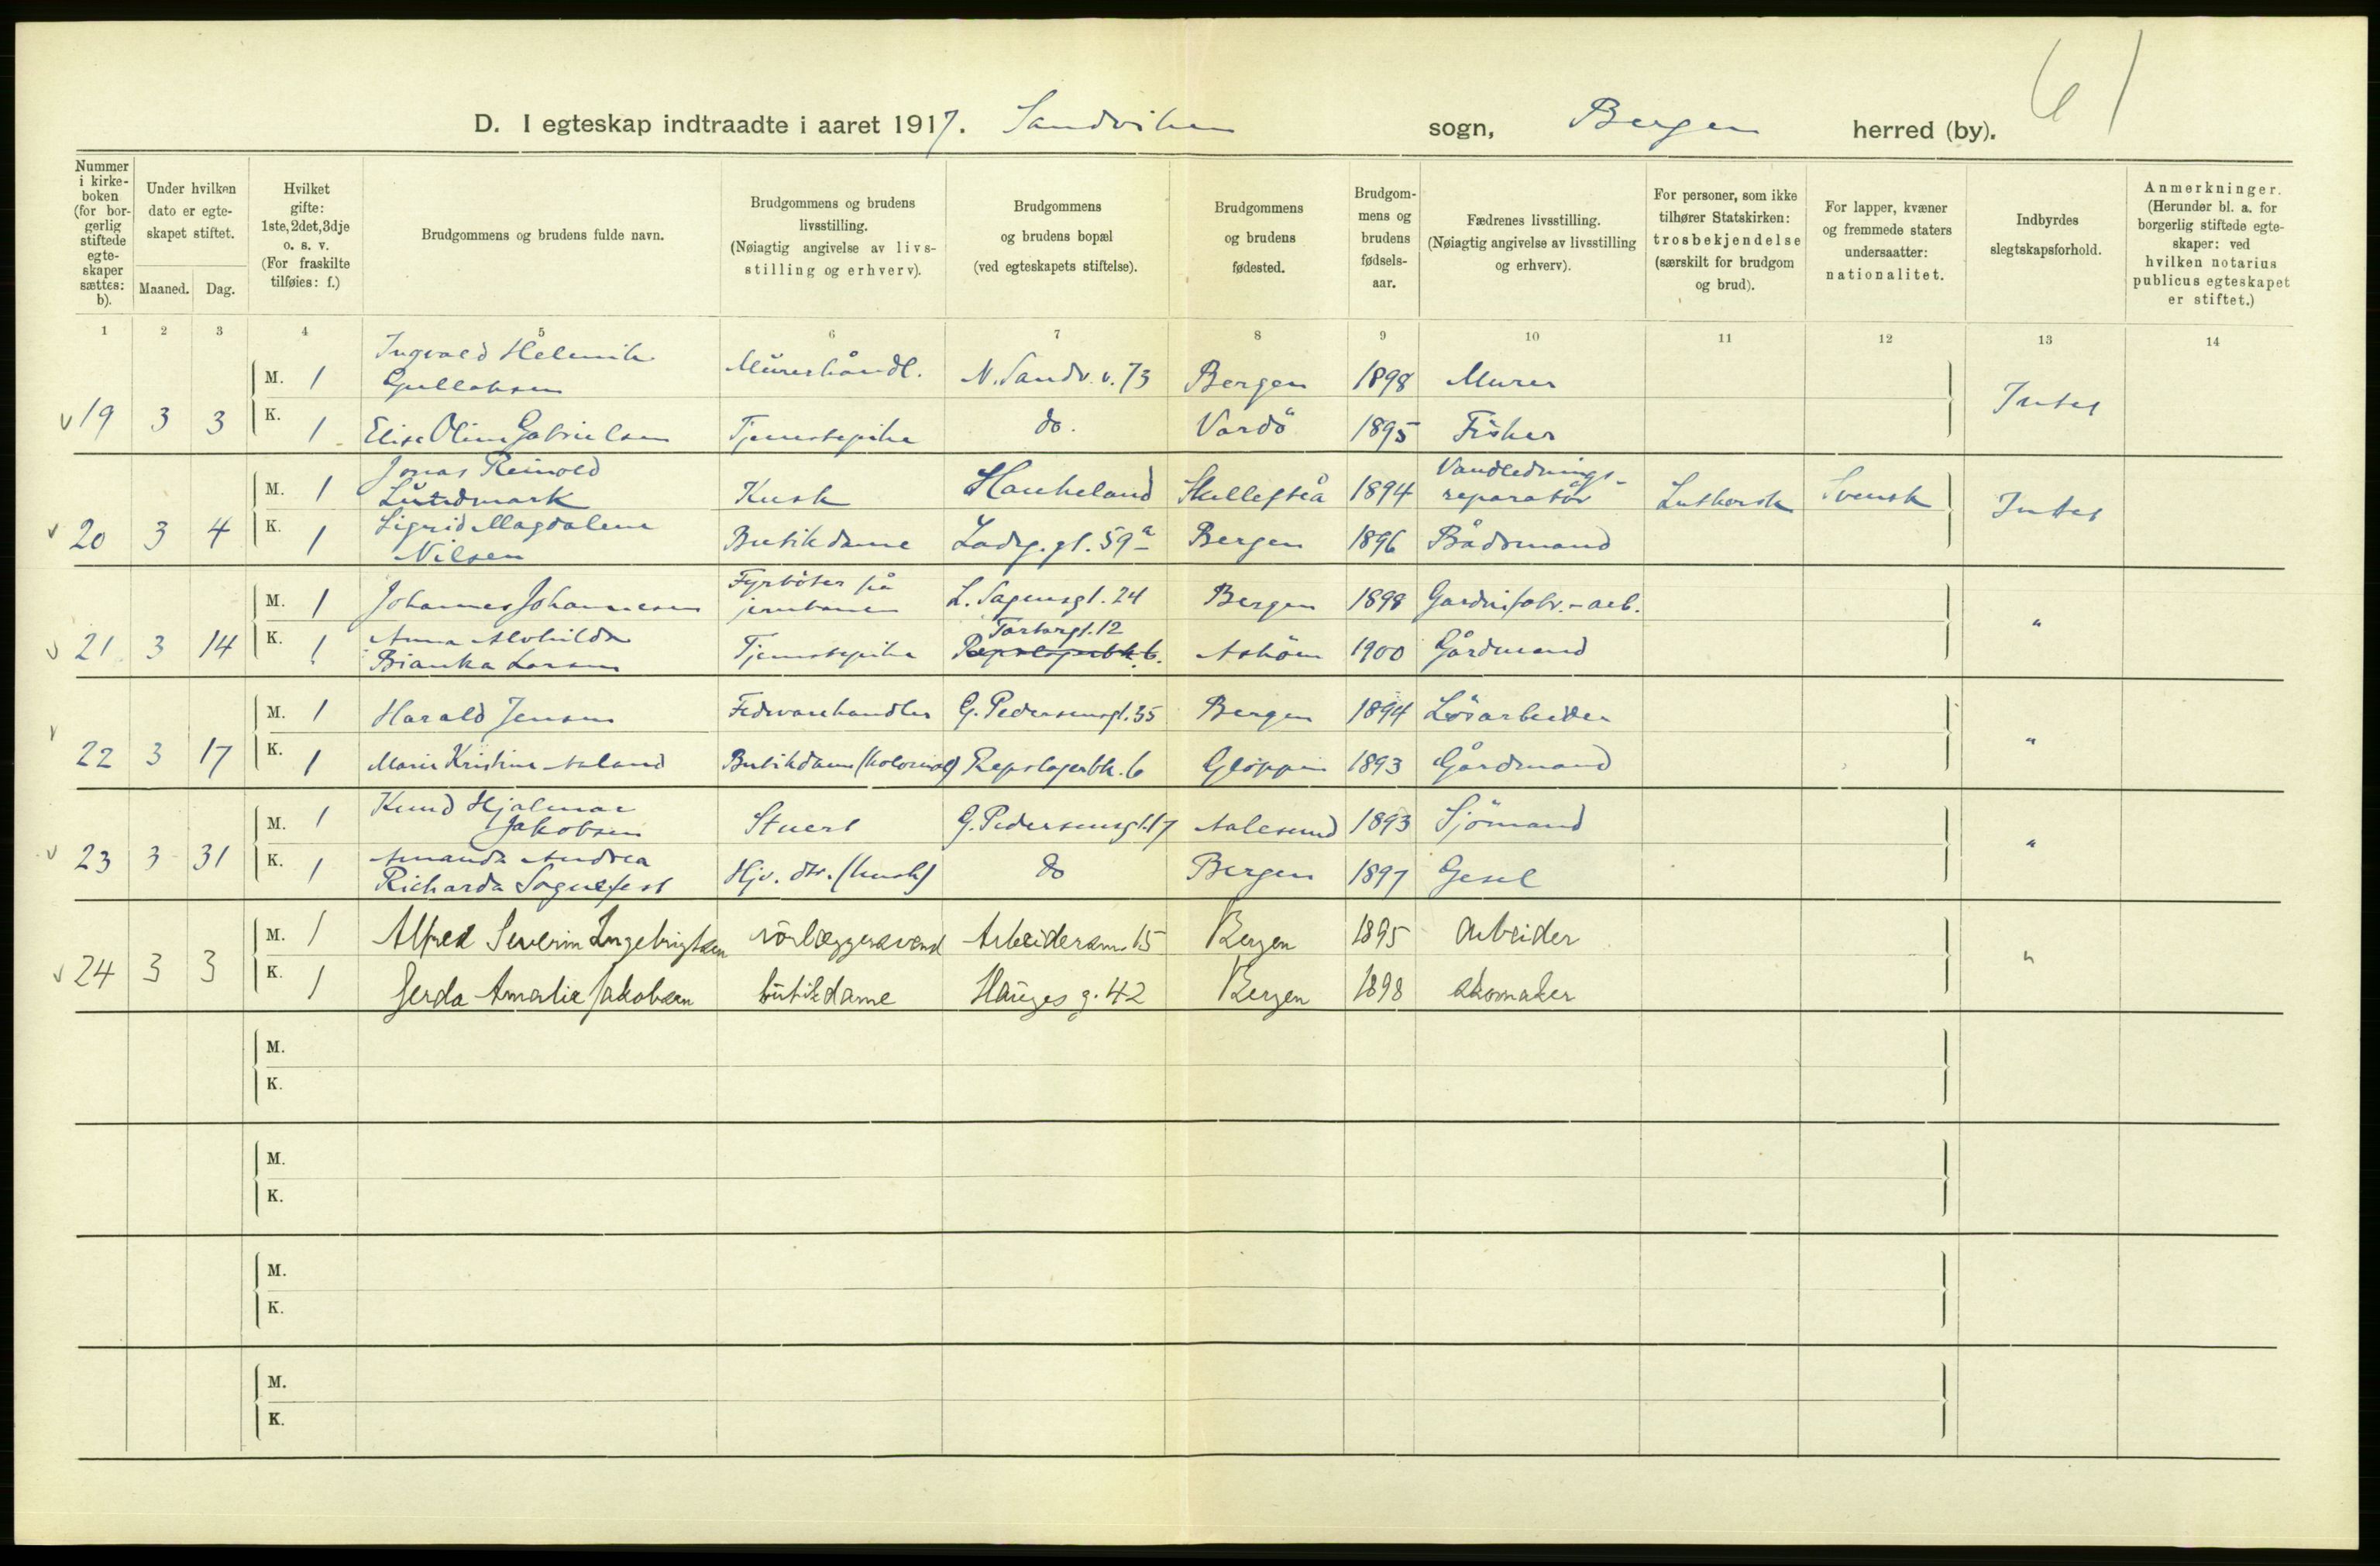 61
D. I egteskap indtraadte i aaret 1917. Sandviken sogn, Bergen herred (by).
Nummer i kirke-boken (for bor-gerlig stiftede egte-skaper sættes: b).
Under hvilken dato er egte-skapet stiftet.
Maaned. Dag.
Hvilket gifte: 1ste, 2det, 3dje o. s. v. (For fraskilte tilføies: f.)
Brudgommens og brudens fulde navn.
Brudgommens og brudens livsstilling. (Nøiagtig angivelse av livs-stilling og erhverv).
Brudgommens og brudens bopæl (ved egteskapets stiftelse).
Brudgommens og brudens fødested.
Brudgom-mens og brudens fødsels-aar.
Fædrenes livsstilling. (Nøiagtig angivelse av livsstilling og erhverv).
For personer, som ikke tilhører Statskirken: trosbekjendelse (særskilt for brudgom og brud).
For lapper, kvæner og fremmede staters undersaatter: nationalitet.
Indbyrdes slegtskapsforhold.
Anmerkninger. (Herunder bl. a. for borgerlig stiftede egte-skaper: ved hvilken notarius publicus egteskapet er stiftet.)
1 2 3 4 5 6 7 8 9 10 11 12 13 14
v 19 3 3 Intet
M. 1 Ingvald Helmik Gullaksen Murerhåndl. N. Sandv. v. 73 Bergen 1898 Murer
K. 1 Elise Oline Gabrielsen Tjenestepike do. Vardö 1895 Fisker
v 20 3 4 Intet
M. 1 Jonas Reinold Lundmark Kusk Haukeland Skellefteå 1894 Vandlednings-reparatör Luthersk Svensk
K. 1 Sigrid Magdalene Nilsen Butikdame Ladeg. gt. 59a Bergen 1896 Bådsmand
v 21 3 14 "
M. 1 Johannes Johannesen Fyrböter på jernbanen L. Sagensgt. 24 Bergen 1898 Gardinfabr.-arb.
K. 1 Anna Alvhilda Bianka Larsen Tjenestepike Tartargt. 12 Repslagerbk. 6. Asköen 1900 Gårdmand
v 22 3 17 "
M. 1 Harald Jensen Fedevarehandler G. Pedersensgt. 35 Bergen 1894 Lösarbeider
K. 1 Marie Kristine Aaland Butikdame (kolonial) Repslagerbk. 6 Gloppen 1893 Gårdmand
v 23 3 31 "
M. 1 Knud Hjalmar Jakobsen Stuert G. Pedersensgt. 17 Aalesund 1893 Sjömand
K. 1 Amanda Andrea Richarda Sognefest Hjv. dtr. (husl) do Bergen 1897 Gesel
v 24 3 3 "
M. 1 Alfred Severin Ingebrigtsen rörlæggersvend Arbeidersm. 15 Bergen 1895 Arbeider
K. 1 Gerda Amalie Jakobsen butikdame Hauges g. 42 Bergen 1898 skomaker
M.
K.
M.
K.
M.
K.
M.
K.